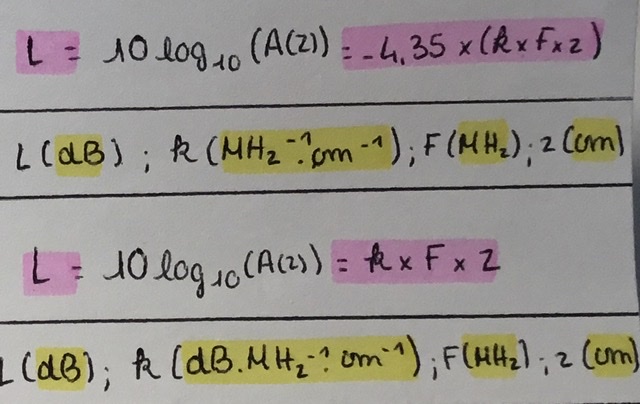 L = 10 log₁₀ (A(z)) = -4,35 x (k x F x z)
L (dB) ; k (MHz⁻¹.cm⁻¹) ; F (MHz) ; z (cm)
L = 10 log₁₀ (A(z)) = k x F x z
L (dB) ; k (dB.MHz⁻¹.cm⁻¹) ; F (MHz) ; z (cm)